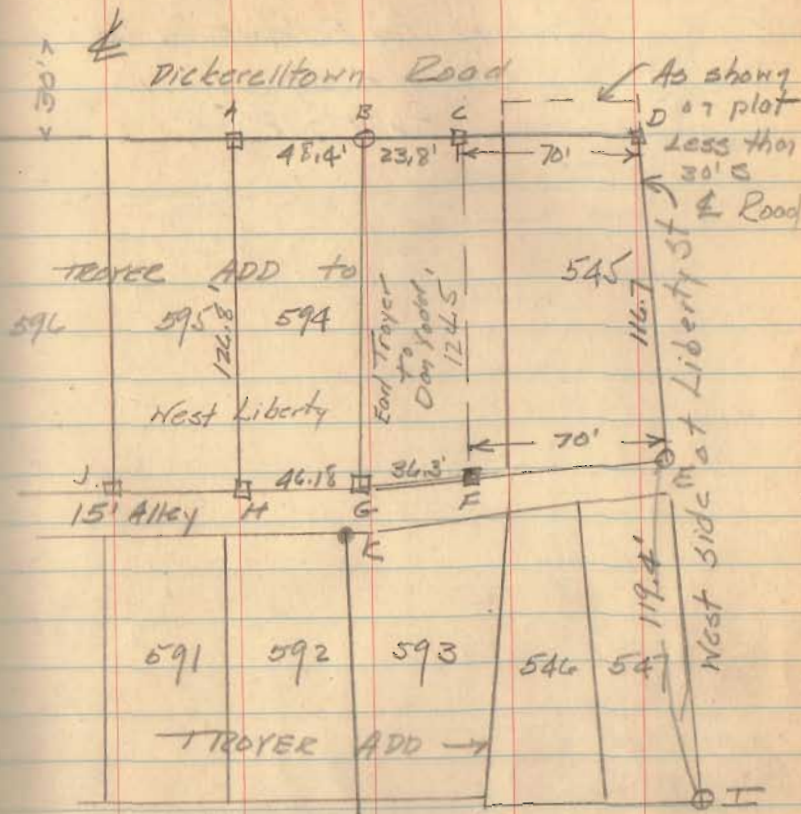 ℄
30'
Dickerelltown Road
As shown
on plat
Less than
30' S
℄ Road
A B C D
48.4' 23.8' 70'
TROYER ADD to
596 595 594 545
126.8'
Earl Troyer
to
Don Yoder
124.5'
116.7
West Liberty
70'
J H 46.18 G 36.3' F
15' Alley
K
119.4'
West side Mt Liberty St
591 592 593 546 547
TROYER ADD
I